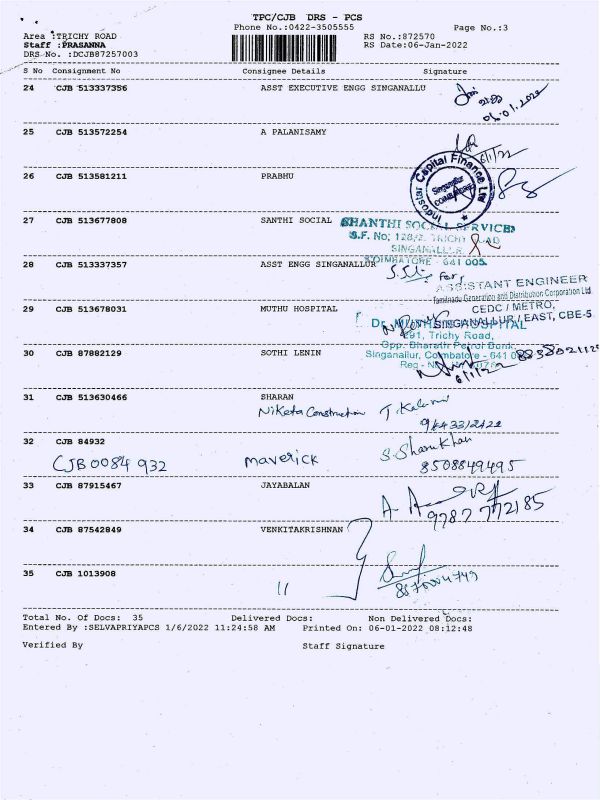 TPC/CJB DRS - PCS
Phone No.:0422-3505555
Page No.:3
Area :TRICHY ROAD
RS No.:872570
Staff :PRASANNA
RS Date:06-Jan-2022
DRS No. :DCJB87257003
S No Consignment No Consignee Details Signature
24 CJB 513337356 ASST EXECUTIVE ENGG SINGANALLU
06.01.2022
25 CJB 513572254 A PALANISAMY
6/1/22
26 CJB 513581211 PRABHU
Indostar Capital Finance Ltd
Singanallur
COIMBATORE
27 CJB 513677808 SANTHI SOCIAL
SHANTHI SOCIAL SERVICES
S.F. No; 128/2, TRICHY ROAD
SINGANALLUR
COIMBATORE - 641 005.
28 CJB 513337357 ASST ENGG SINGANALLUR
For,
ASSISTANT ENGINEER
Tamilnadu Generation and Distribution Corporation Ltd.
CEDC / METRO,
SINGANALLUR / EAST, CBE-5
29 CJB 513678031 MUTHU HOSPITAL
Dr. MUTHUS HOSPITAL
291, Trichy Road,
Opp. Bharath Petrol Bunk,
Singanallur, Coimbatore - 641 0
30 CJB 87882129 SOTHI LENIN
6/1/22
31 CJB 513630466 SHARAN
Niketa Construction
32 CJB 84932
CJB 0084 932 maverick
S. Sharukhan
8508849495
33 CJB 87915467 JAYABALAN
9787 772185
34 CJB 87542849 VENKITAKRISHNAN
35 CJB 1013908
11
Total No. Of Docs: 35 Delivered Docs: Non Delivered Docs:
Entered By :SELVAPRIYAPCS 1/6/2022 11:24:58 AM Printed On: 06-01-2022 08:12:48
Verified By Staff Signature